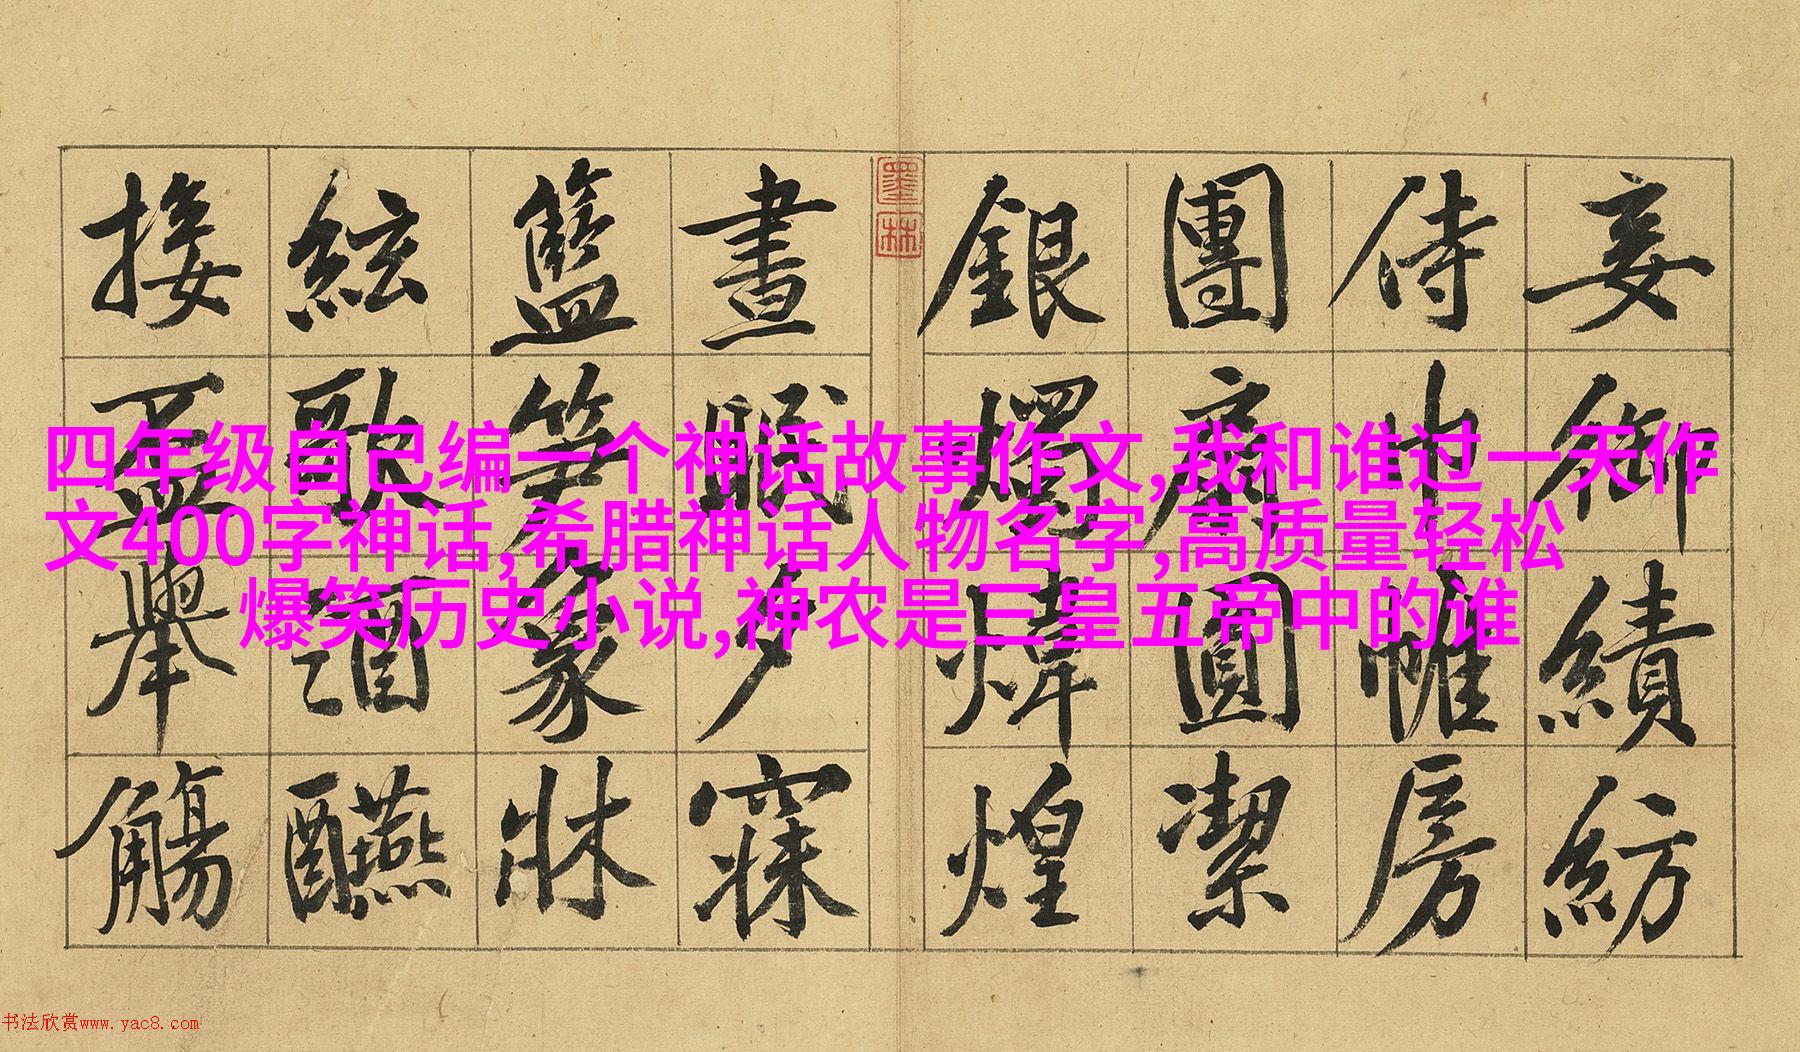 妾御績紡
侍巾帷房
團扇圓潔
銀燭煒煌
墨林
晝眠夕寐
籃笋象牀
絃歌酒醼
接盃舉觴
四年级自己编一个神话故事作文,我和谁过一天作
文400字神话,希腊神话人物名字,高质量轻松
爆笑历史小说,神农是三皇五帝中的谁
书法欣赏www.yac8.com